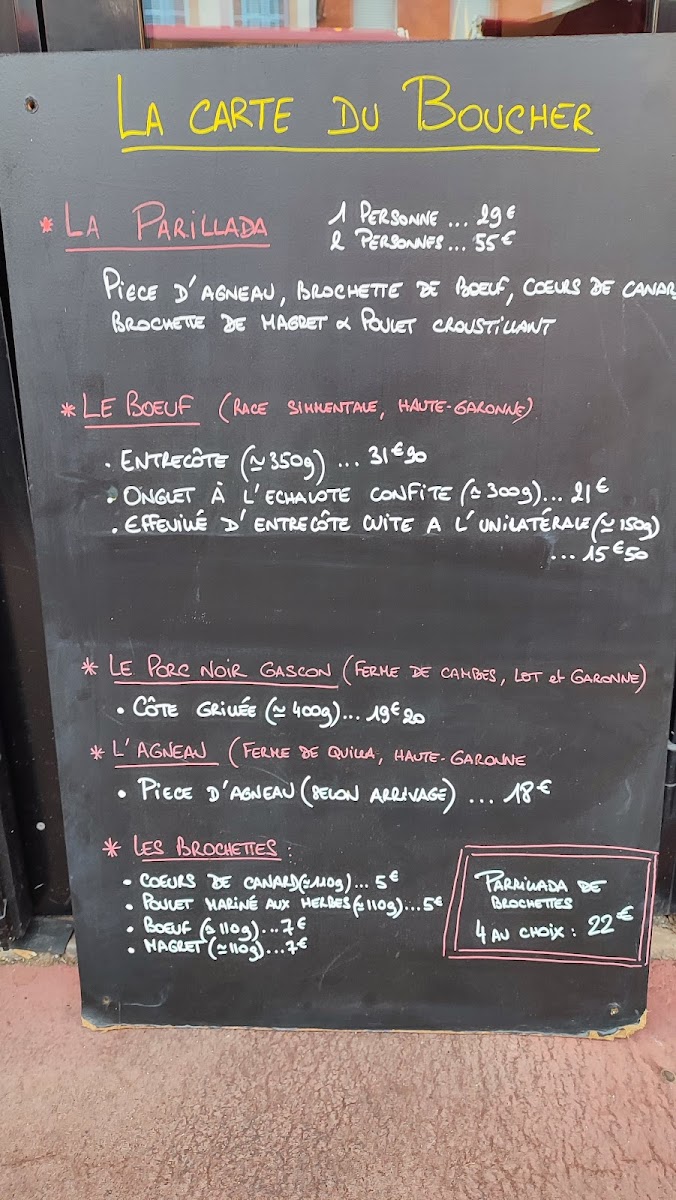 LA CARTE DU BOUCHER
* LA PARILLADA 1 PERSONNE ... 29€
2 PERSONNES... 55€
PIECE D'AGNEAU, BROCHETTE DE BOEUF, COEURS DE CANAR
BROCHETTE DE MAGRET & POULET CROUSTILLANT
* LE BOEUF (RACE SIMMENTALE, HAUTE-GARONNE)
• ENTRECÔTE (≃350g) ... 31€90
• ONGLET À L'ECHALOTE CONFITE (≃300g)... 21€
• EFFEUILLÉ D'ENTRECÔTE CUITE A L'UNILATÉRALE (≃150g)
... 15€50
* LE PORC NOIR GASCON (FERME DE CAMBES, LOT et GARONNE)
• CÔTE GRILLÉE (≃400g)... 19€20
* L'AGNEAU (FERME DE QUILLA, HAUTE-GARONNE
• PIECE D'AGNEAU (SELON ARRIVAGE) ... 18€
* LES BROCHETTES :
• COEURS DE CANARD(≃110g)... 5€
• POULET MARINÉ AUX HERBES(≃110g)...5€
• BOEUF (≃110g)...7€
• MAGRET (≃110g)...7€
PARRILLADA DE
BROCHETTES
4 AU CHOIX : 22€